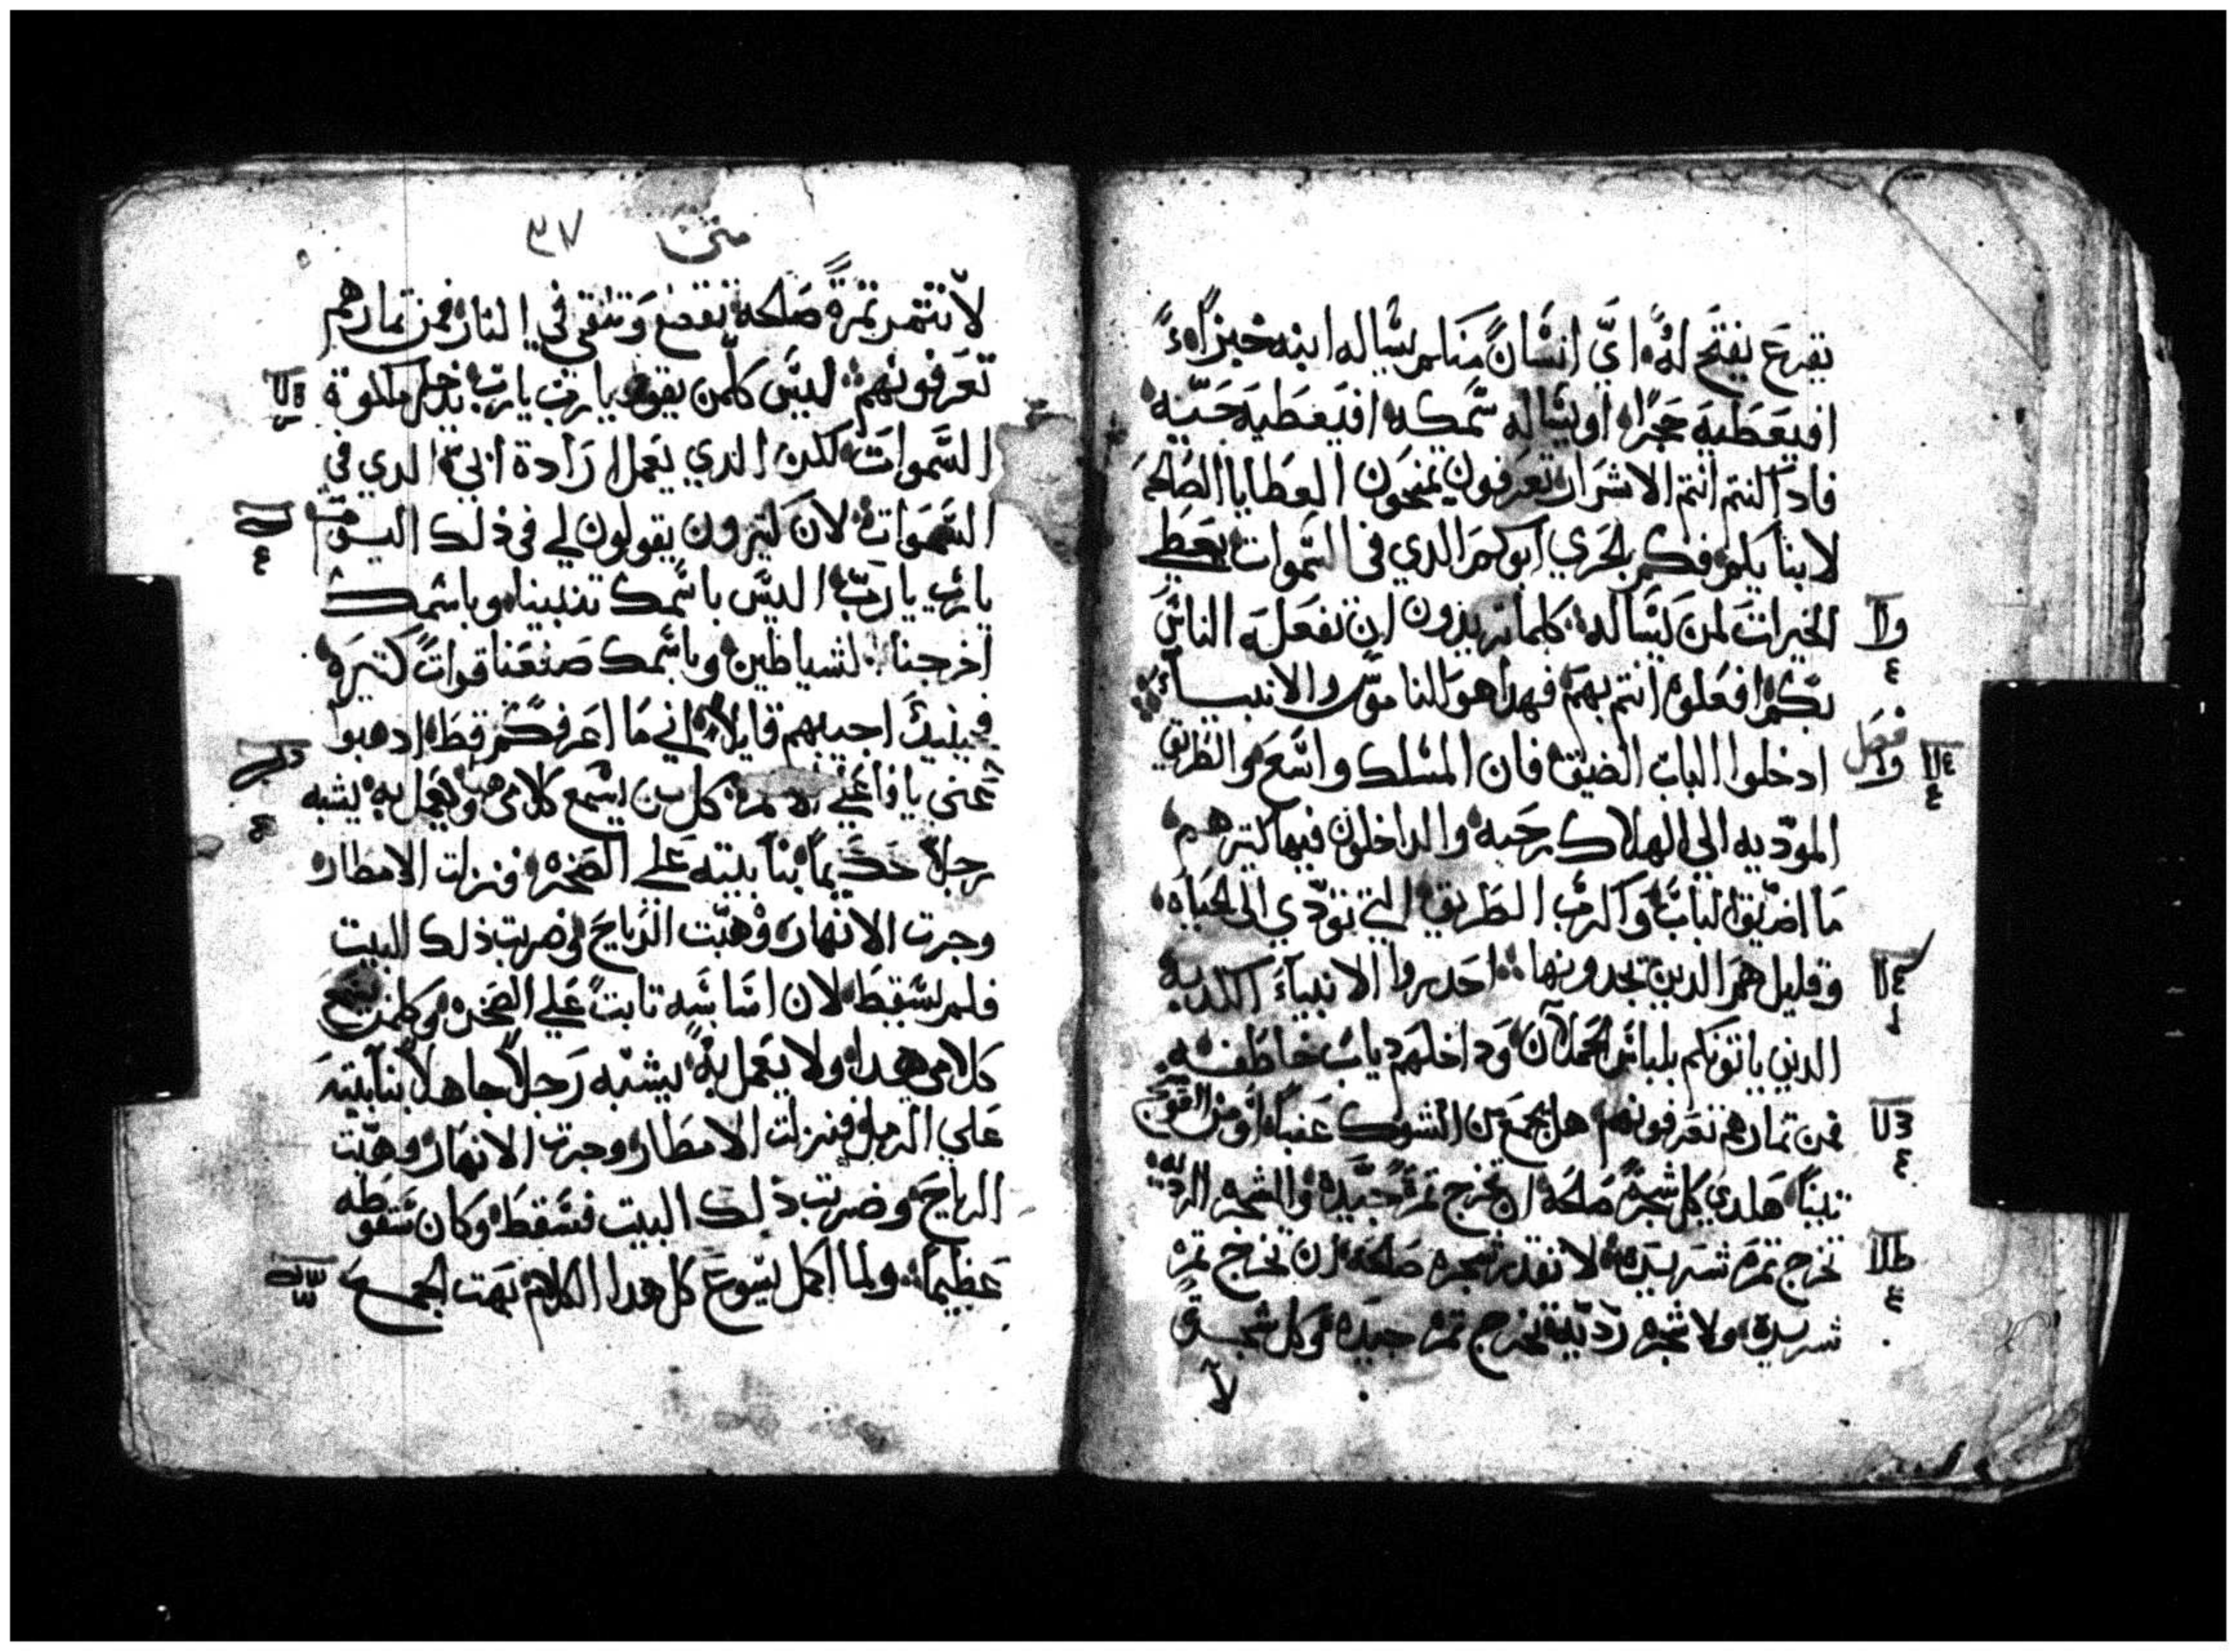 يقرع يفتح له اي انسان منكم يساله ابنه خبزاً
افيعطيه حجرا او يساله سمكه افيعطيه حيّه
فاد اكنتم انتم الاشرار تعرفون تمنحون العطايا الصالحه
لابنايكم فكم بالحري ابوكم الدي في السموات يعطي
الخيرات لمن يساله كلما تريدون ان تفعله الناس
بكم افعلوه انتم بهم فهدا هو الناموس والانبيآء
فصل
ادخلوا الباب الضيق فان المسلك واسع والطريق
المودّيه الي الهلاك رحبه والداخلون فيها كتير هم
ما اضيق الباب واكرب الطريق التي تودّي الى الحياه
وقليل هم الدين يجدونها احدروا الانبيآء الكدبه
الدين ياتونكم بلباس الحملان وداخلهم دياب خاطفه
فمن تمارهم تعرفونهم هل يجمع من الشوك عنباً او من العوسج
تيناً هكدي كل شجرة صالحه تخرج تمرة جيّده والشجره الرديه
تخرج تمره شريره لا تقدر شجره صالحه ان تخرج تمره
شريره ولا شجره رديّه تخرج تمره جيده وكل شجرة
لا
متى ٣٧
لا تتمر تمرةً صالحه تقطع وتلقي في النار فمن تمارهم
تعرفونهم ليس كلّمن يقول يا رب يا رب يدخل ملكوة
السموات لكن الدي يعمل ارادة ابي الدي في
السموات لان كتيرون يقولون لي في ذلك اليوم
يا رب يا رب اليس باسمك تنبينا وباسمك
اخرجنا الشياطين وباسمك صنعنا قوات كتيره
فحينيدٍ اجيبهم قايلاً اني ما اعرفكم قط ادهبوا
عني يا فاعلي الاتم كل من يسمع كلامي ويعمل به يشبه
رجلاً حكيماً بنا بيته علي الصخره فنزلت الامطار
وجرت الانهار وهبّت الرياح وضربت ذلك البيت
فلم يسقط لان اساسه تابت علي الصخره وكلمن يسمع
كلامي هدا ولا يعمل به يشبه رجلاً جاهلاً بنا بيته
علي الرمل فنزلت الامطار وجرت الانهار وهبّت
الرياح وضربت ذلك البيت فسقط وكان سقوطه
عظيماً ولما اكمل يسوع كل هدا الكلام بهت الجمع